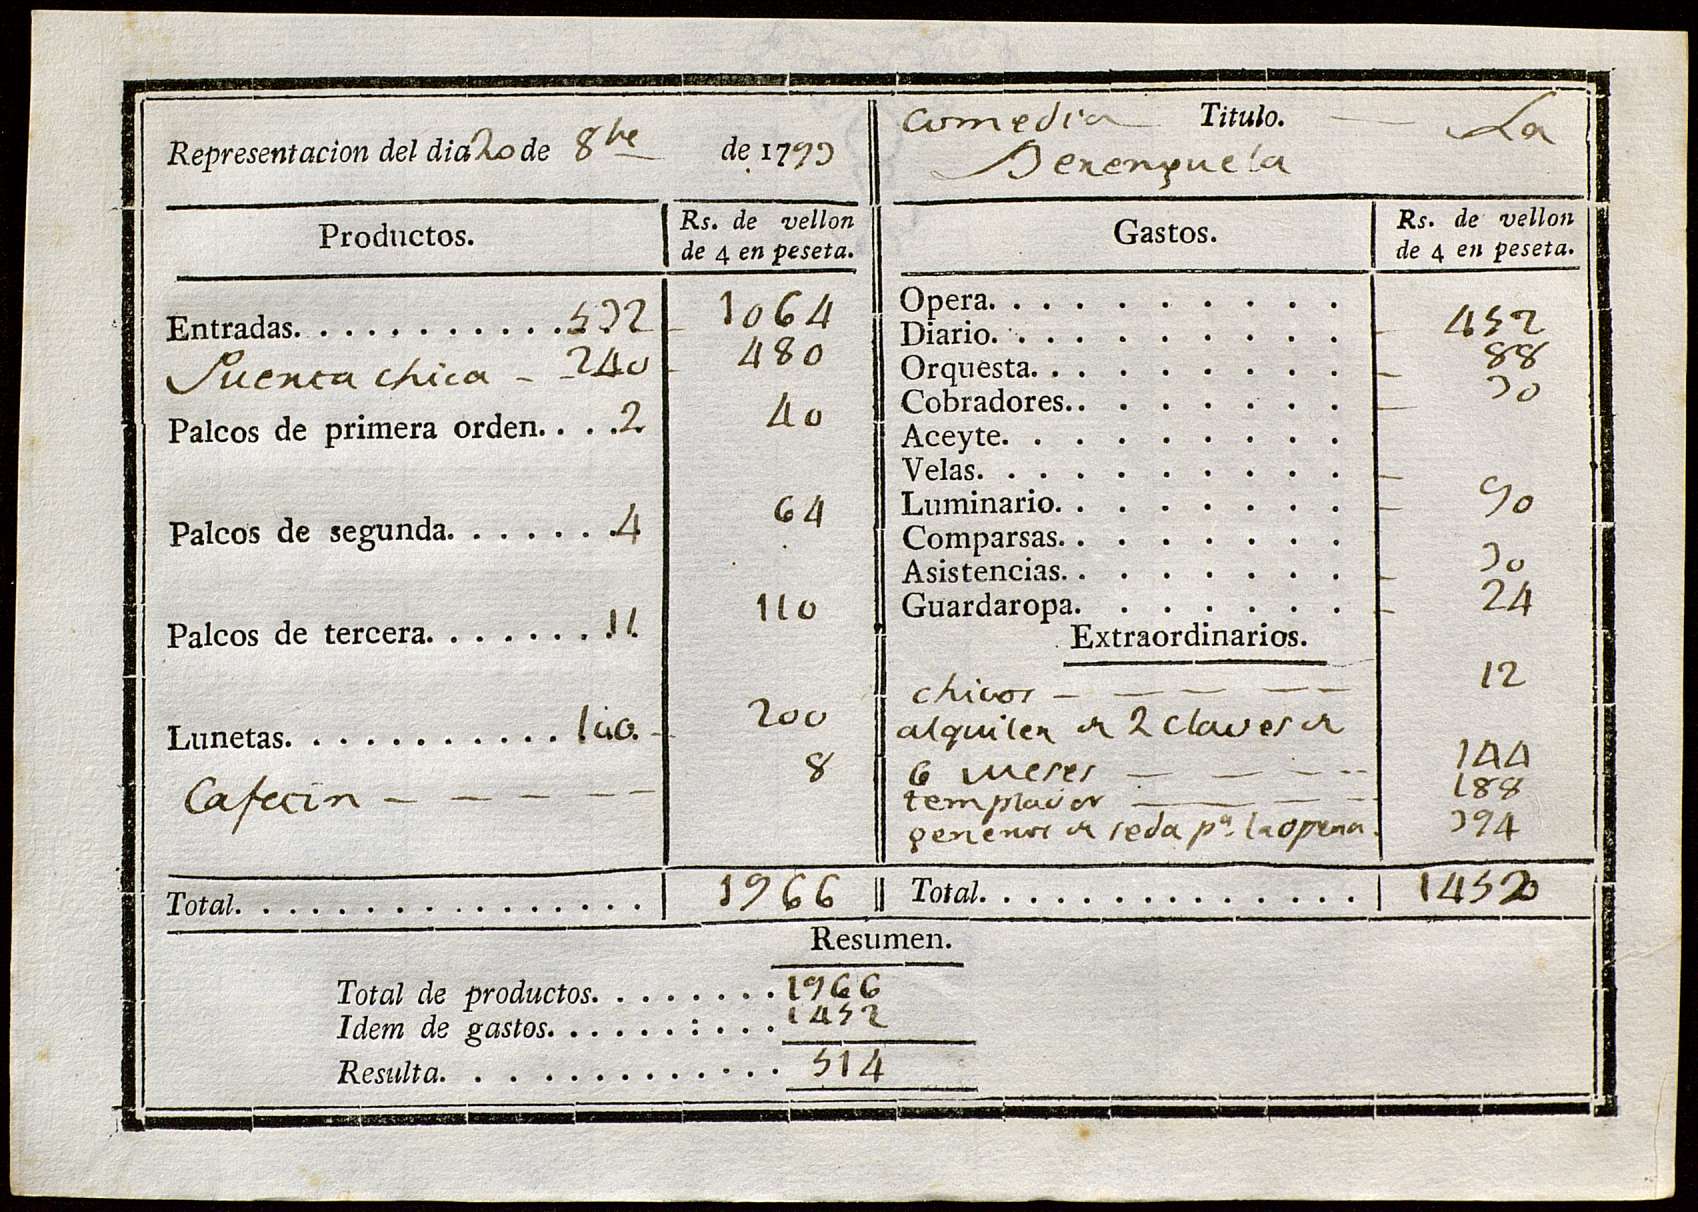 Representacion del dia 20 de 8bre de 1793
comedia Titulo. — La
Berenguela
Productos. Rs. de vellon
de 4 en peseta.
Entradas. . . . . . . . . . . 532 - 1064
Puerta chica - - 240 - 480
Palcos de primera orden. . . . . 2 40
Palcos de segunda. . . . . . . 4 64
Palcos de tercera. . . . . . . . 11 110
Lunetas. . . . . . . . . . . . 100 - 200
Cafecin - - - - - - 8
Total. . . . . . . . . . . . . . . . 1966
Gastos. Rs. de vellon
de 4 en peseta.
Opera. . . . . . . . . .
Diario. . . . . . . . . . - 452
Orquesta. . . . . . . . . - 88
Cobradores. . . . . . . . - 30
Aceyte. . . . . . . . .
Velas. . . . . . . . . . -
Luminario. . . . . . . . - 90
Comparsas. . . . . . . .
Asistencias. . . . . . . . - 30
Guardaropa. . . . . . . - 24
Extraordinarios.
chicos - - - - - 12
alquiler de 2 claves de
6 meses - - - - 144
templador - - - 188
generos de seda pa. la opera. 394
Total. . . . . . . . . . . . . . . 1452
Resumen.
Total de productos. . . . . . . . 1966
Idem de gastos. . . . . . : . . . 1452
Resulta. . . . . . . . . . . . . 514